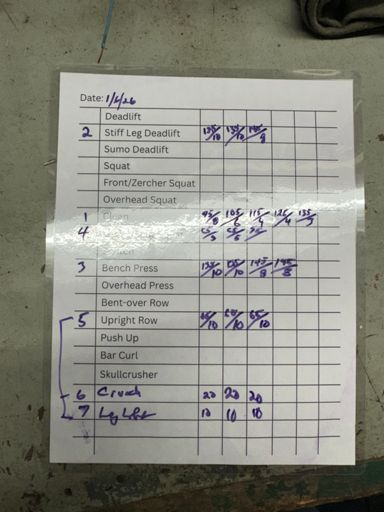 Date: 1/6/26
Deadlift
2 Stiff Leg Deadlift 135/10 135/10
Sumo Deadlift
Squat
Front/Zercher Squat
Overhead Squat
1 Clean 95/8 105/6 115/4 125/4 135/3
4
3 Bench Press 135/10 145/8
Overhead Press
Bent-over Row
5 Upright Row 65/10 65/10 65/10
Push Up
Bar Curl
Skullcrusher
6 Crunch 20 20 20
7 Leg Lift 10 10 10